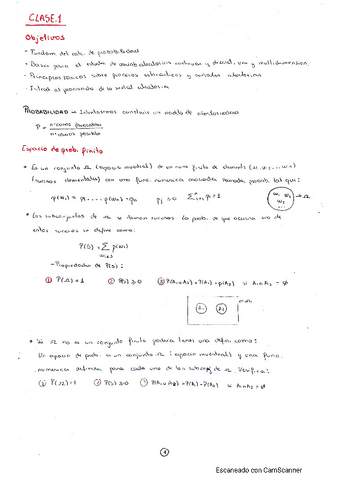 CLASE.1
Objetivos
- Fundam. del calc. de probabilidad
- Bases para el estudio de variab. aleatorias continuas y discret, uni y multidimension.
- Principios básicos sobre procesos estocásticos y señales aleatorias
- Introd. al procesado de la señal aleatoria
PROBABILIDAD → Intentaremos construir un modelo de aleatoriedad
P = nº casos favorables / nº casos posibles
Espacio de prob. finito
• Es un conjunto Ω (espacio muestral) de un num finito de elements (ω1, ω2...ωn)
(sucesos elementales) con una func. numerica asociada llamada probab. tal que:
p(ω1) = p1 ..... p(ωn) = pn pj ≥ 0 Σ pj = 1
ω1 ω2 → Ω
ω3
...
• Los subconjuntos de Ω se llaman sucesos. La prob. de que ocurra uno de
estos sucesos se define como:
P(S) = Σ p(ωi)
- Propiedades de P(S):
① P(Ω) = 1 ② P(S) ≥ 0 ③ P(A1 ∪ A2) = P(A1) + P(A2) si A1 ∩ A2 = ∅
A1 A2
• Si Ω no es un conjunto finito podría tener una defin. como:
Un espacio de prob. es un conjunto Ω (espacio muestral) y una func.
numerica definida para cada uno de los subconj de Ω. Verifica:
① P(Ω) = 1 ② P(S) ≥ 0 ③ P(A1 ∪ A2) = P(A1) + P(A2) si A1 ∩ A2 = ∅
1
Escaneado con CamScanner